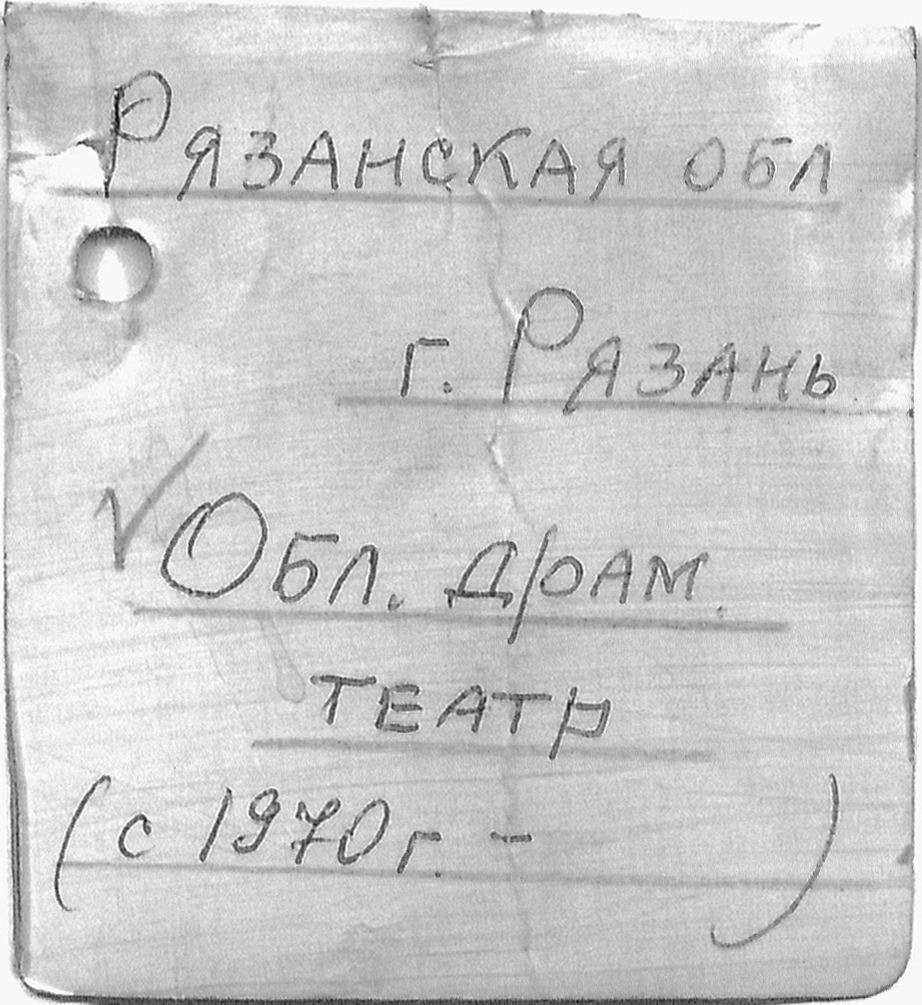 Рязанская обл
г. Рязань
√ Обл. драм.
театр
(с 1970 г. -            )